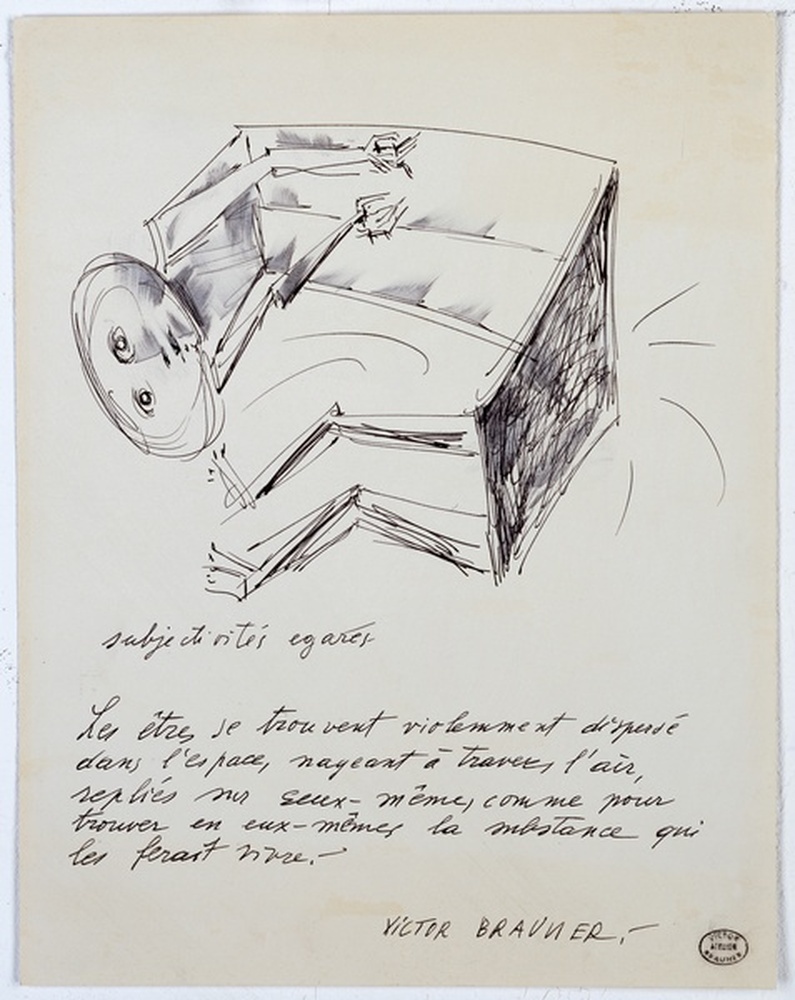 subjectivités egarés
Les êtres se trouvent violemment dispersé
dans l'espace, nageant à travers l'air,
repliés sur seux-même, comme pour
trouver en eux-mêmes la substance qui
les ferait vivre.-
VICTOR BRAUNER.-
VICTOR
ATELIER
BRAUNER